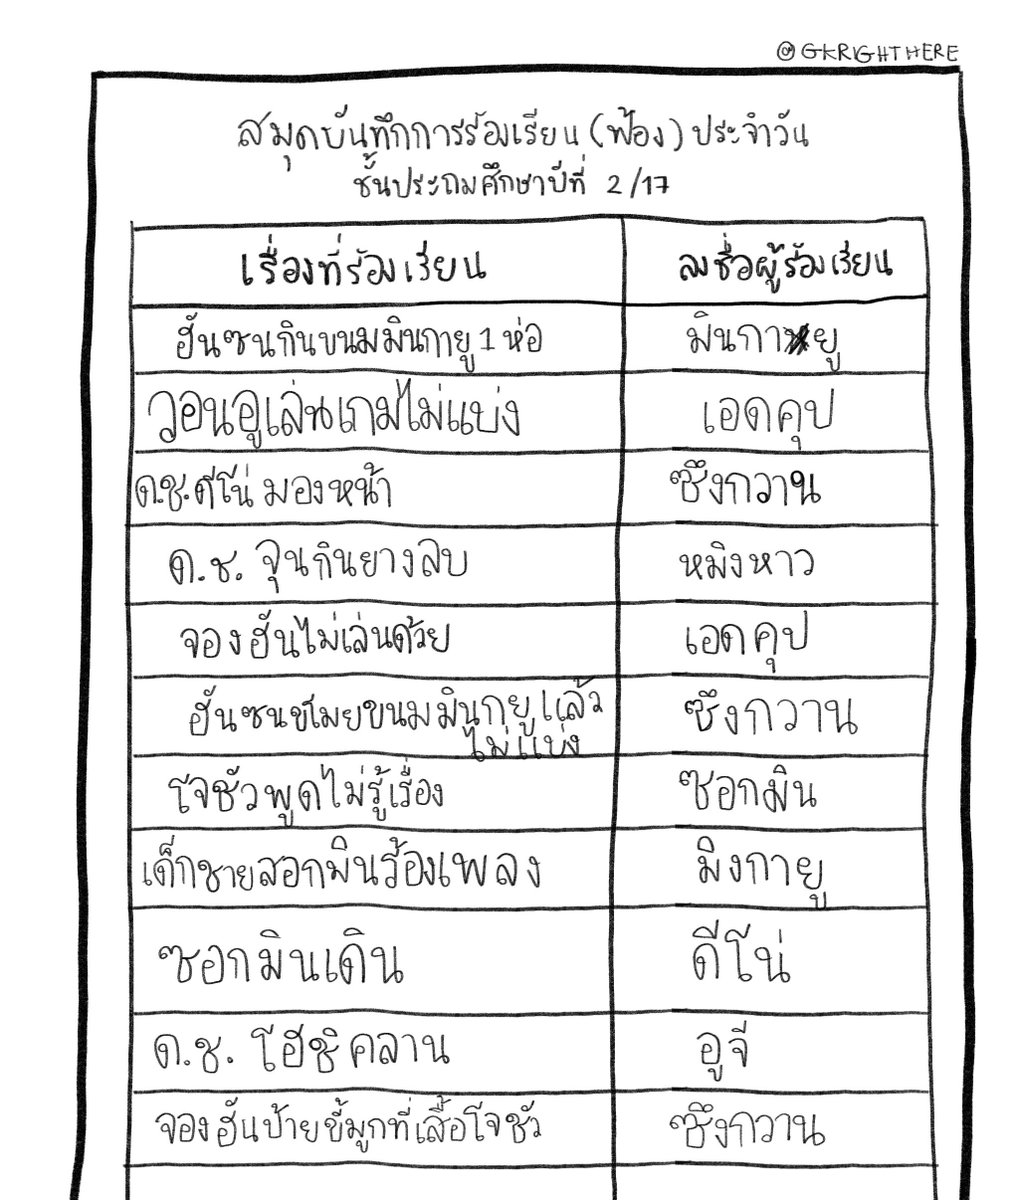 @GKRIGHTHERE
สมุดบันทึกการร้องเรียน (ฟ้อง) ประจำวัน
ชั้นประถมศึกษาปีที่ 2/17
เรื่องที่ร้องเรียน ลงชื่อผู้ร้องเรียน
ฮันซนกินขนมมินกายู 1 ห่อ มินกายู
วอนอูเล่นเกมไม่แบ่ง เอดคุป
ด.ช.ดีโน่ มองหน้า ซึงกวาน
ด.ช. จุนกินยางลบ หมิงหาว
จองฮันไม่เล่นด้วย เอดคุป
ฮันซนขโมยขนมมินกยูแล้ว ซึงกวาน
ไม่แบ่ง
โจชัวพูดไม่รู้เรื่อง ซอกมิน
เด็กชายสอกมินร้องเพลง มิงกายู
ซอกมินเดิน ดีโน่
ด.ช. โฮชิ คลาน อูจี
จองฮันป้ายขี้มูกที่เสื้อโจชัว ซึงกวาน